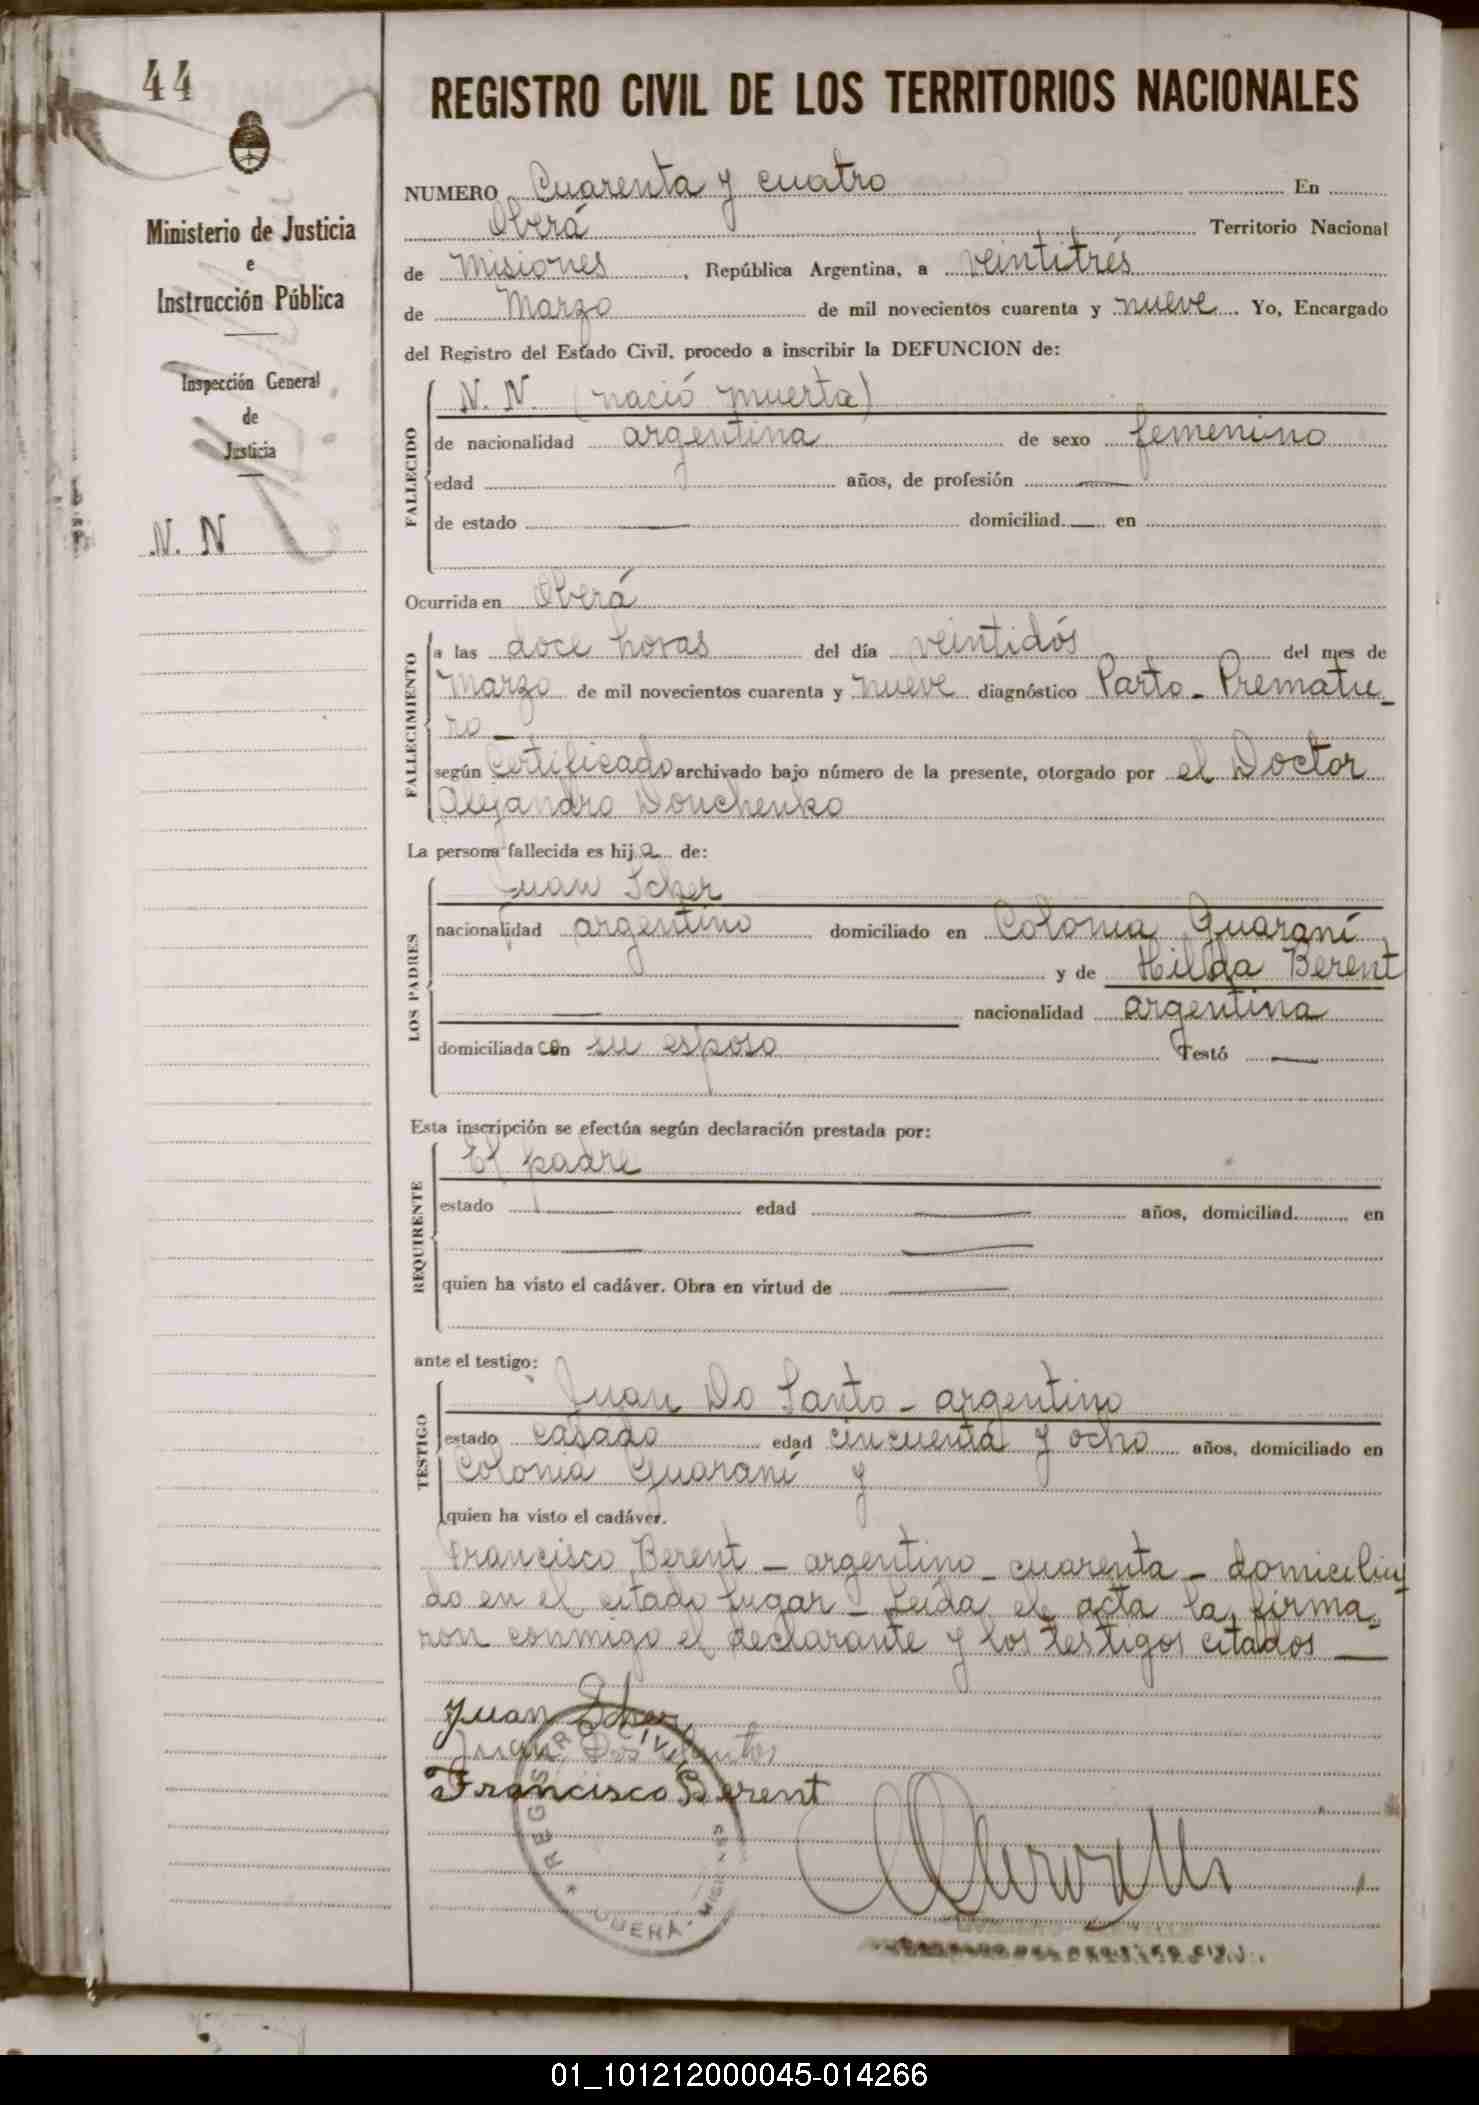 44
Ministerio de Justicia
e
Instrucción Pública
Inspección General
de
Justicia
N. N
REGISTRO CIVIL DE LOS TERRITORIOS NACIONALES
NUMERO Cuarenta y cuatro En
Oberá Territorio Nacional
de Misiones, República Argentina, a veintitrés
de Marzo de mil novecientos cuarenta y nueve. Yo, Encargado
del Registro del Estado Civil, procedo a inscribir la DEFUNCION de:
FALLECIDO
N. N. (nació muerta)
de nacionalidad argentina de sexo femenino
edad años, de profesión —
de estado — domiciliad — en
Ocurrida en Oberá
FALLECIMIENTO
a las doce horas del día veintidós del mes de
Marzo de mil novecientos cuarenta y nueve diagnóstico Parto - Prematu-
ro —
según Certificado archivado bajo número de la presente, otorgado por el Doctor
Alejandro Douchenko
La persona fallecida es hija de:
LOS PADRES
Juan Scher
nacionalidad argentino domiciliado en Colonia Guaraní
y de Hilda Berent
— nacionalidad argentina
domiciliada con su esposo Testó —
Esta inscripción se efectúa según declaración prestada por:
REQUIRENTE
El padre
estado — edad — años, domiciliad en
— —
quien ha visto el cadáver. Obra en virtud de —
ante el testigo:
TESTIGO
Juan Do Santo - argentino
estado casado edad cincuenta y ocho años, domiciliado en
Colonia Guaraní y
quien ha visto el cadáver.
Francisco Berent - argentino - cuarenta - domicilia
do en el citado lugar - Leída el acta la firma-
ron conmigo el declarante y los testigos citados —
Juan Scher
Juan Dos Santos
Francisco Berent
REGISTRO CIVIL
OBERÁ - MISIONES
01_101212000045-014266